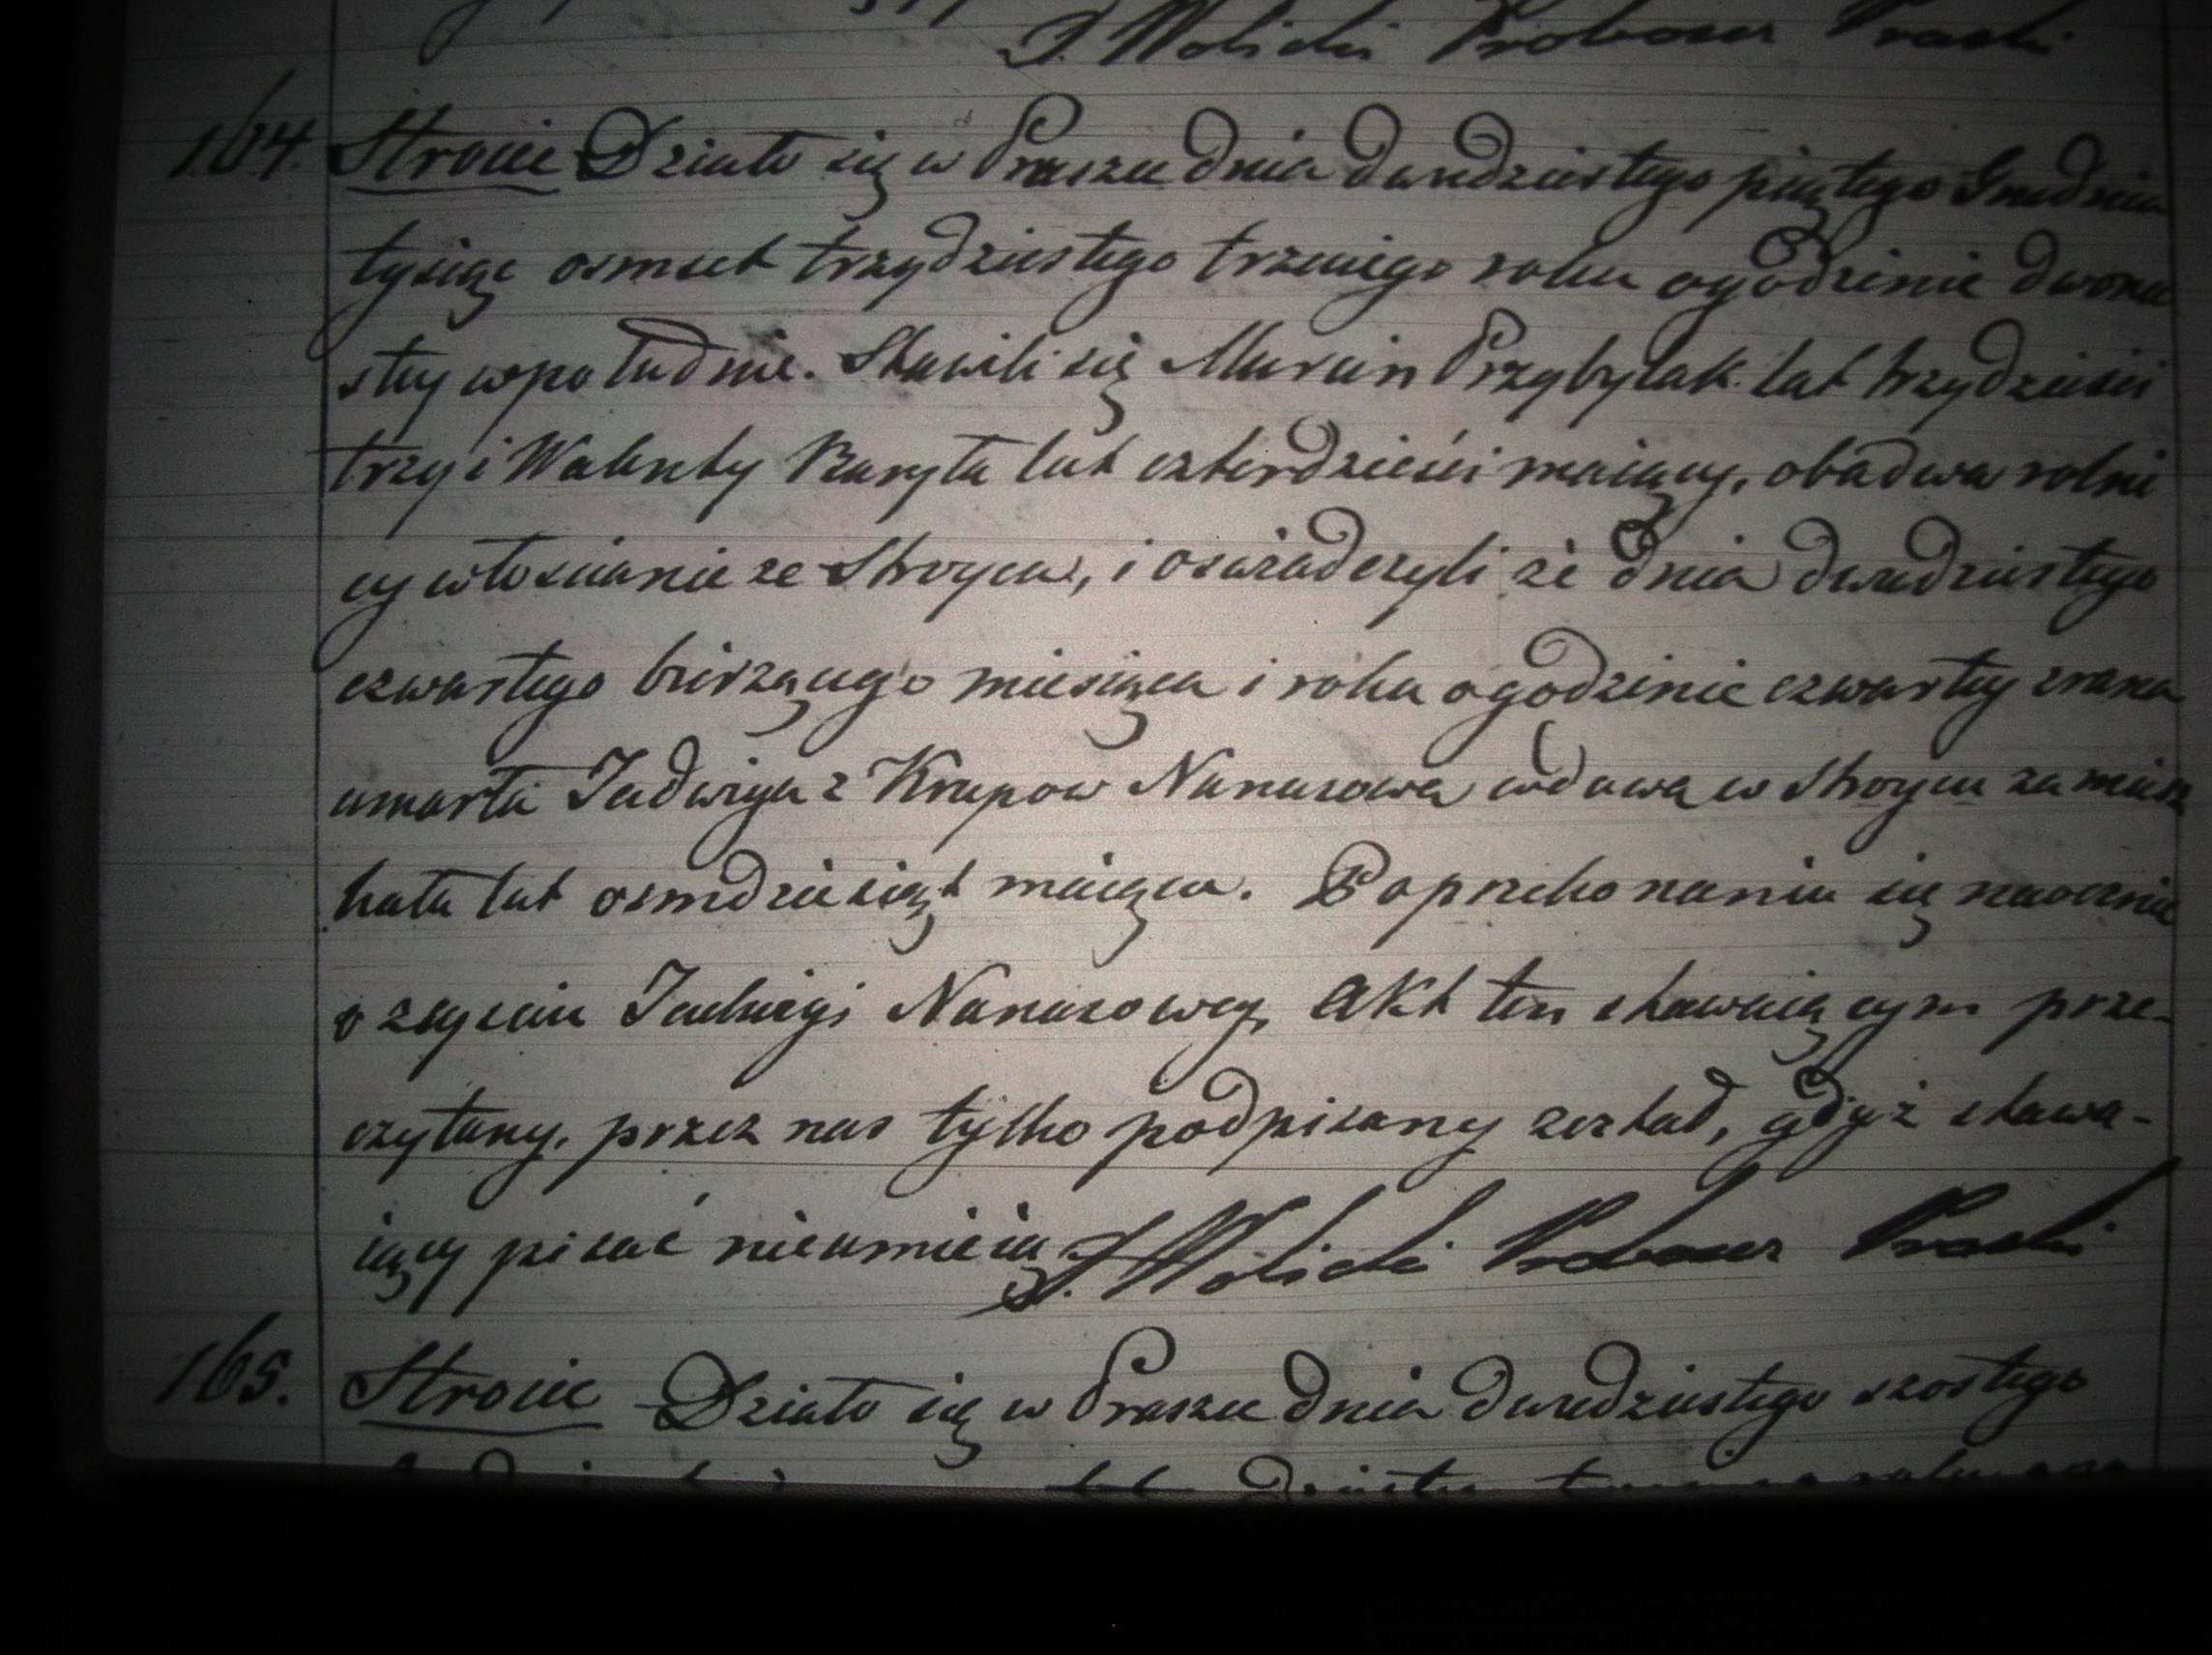 J. Wolicki Proboszcz Praski
164. Stroiec Działo się w Praszce dnia dwudziestego piątego Grudnia
tysiąc osmset trzydziestego trzeciego roku o godzinie dwona
stey w południe. Stawili się Marcin Przybylak lat trzydzieści
trzy i Walenty lat czterdzieści maiący, obadwa rolni
cy włościanie ze Stroyca, i oświadczyli że dnia dwudziestego
czwartego bieżącego miesiąca i roku o godzinie czwartey zrana
umarła Jadwiga z Krupow Nanusowa wdowa w Stroycu zamiesz
kała lat osmdziesiąt maiąca. Po przekonaniu się naocznie
o zeyściu Jadwigi Nanusowey, Akt ten stawaiącym prze-
czytany, przez nas tylko podpisany został, gdyż stawa-
iący pisać nieumieią J. Wolicki Proboszcz Praski
165. Stroiec Działo się w Praszce dnia dwudziestego szostego